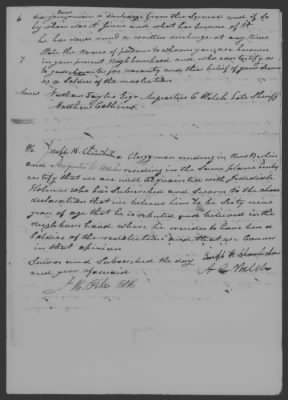 6 did you ever receive a discharge from the Service and if so
by whom was it given and what has become of it
he has never recd a written discharge at any time
7 State the names of persons to whom you are known
in your present Neighbourhood and who can testify as
to your character for veracity and their belief of your services
as a Soldier of the revolution
Answ Nathan Taylor Esqr Augustus C Welsh late Sheriff
Matthew Collins
We Joseph H. a Clergyman residing in the
and Augustus C. Welsh residing in the same place hereby
certify that we are well acquainted with Jedediah
Holmes who has Subscribed and Sworn to the above
declaration that we believe him to be Sixty nine
years of age that he is reputed and believed in the
neighbourhood where he resides to have been a
Soldier of the revolution and that we concur
in that opinion
Sworn and Subscribed the day
and year aforesaid
Joseph H.
A C Welsh
Clk